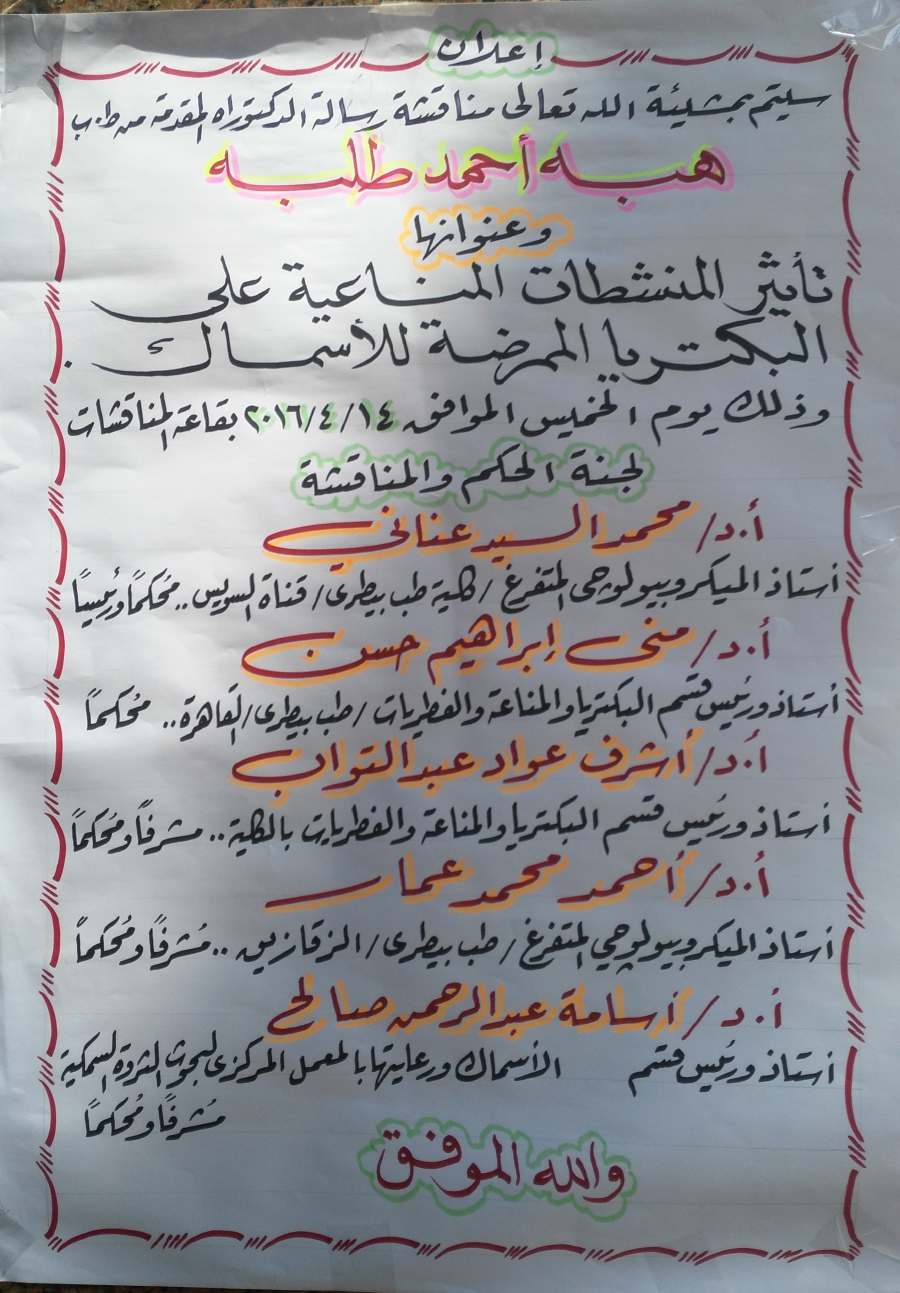 إعلان
سيتم بمشيئة الله تعالى مناقشة رسالة الدكتوراه المقدمة من ط.ب
هبه أحمد طلبه
وعنوانها
تأثير المنشطات المناعية على
البكتريا الممرضة للأسماك.
وذلك يوم الخميس الموافق ١٤/٤/٢٠١٦ بقاعة المناقشات
لجنة الحكم والمناقشة
أ.د/ محمد السيد عناني
أستاذ الميكروبيولوجى المتفرغ / كلية طب بيطرى / قناة السويس .. مُحكماً ورئيساً
أ.د/ منى إبراهيم حسن
أستاذ ورئيس قسم البكتريا والمناعة والفطريات / طب بيطرى / القاهرة .. مُحكماً
أ.د/ أشرف عواد عبد التواب
أستاذ ورئيس قسم البكتريا والمناعة والفطريات بالكلية .. مشرفاً ومُحكماً
أ.د/ أحمد محمد عمار
أستاذ الميكروبيولوجي المتفرغ / طب بيطرى / الزقازيق .. مُشرفاً ومُحكماً
أ.د/ أسامة عبد الرحمن صالح
أستاذ ورئيس قسم الأسماك ورعايتها بالمعمل المركزى لبحوث الثروة السمكية
مُشرفاً ومُحكماً
والله الموفق